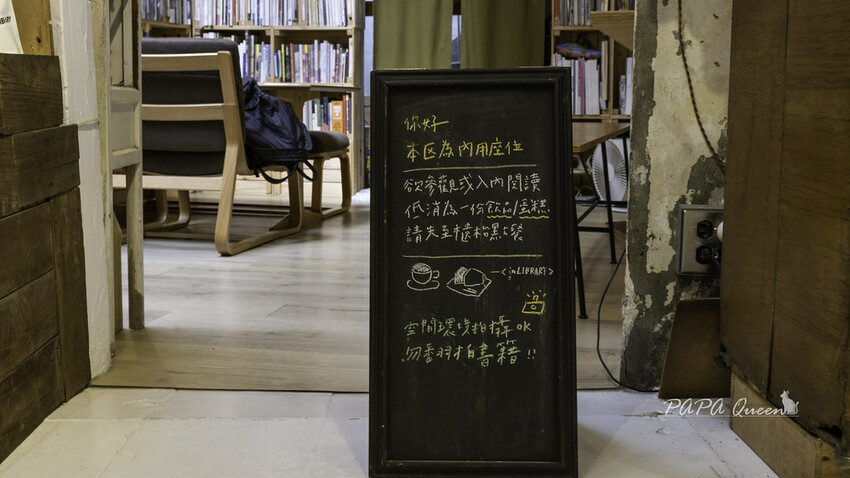 你好
本区為內用座位
欲參觀或入內閱讀
低消為一份飲品/蛋糕
請先至櫃枱點餐
<in LIBRARY>
空間環境拍攝OK
勿翻拍書籍!!
PAPA Queen